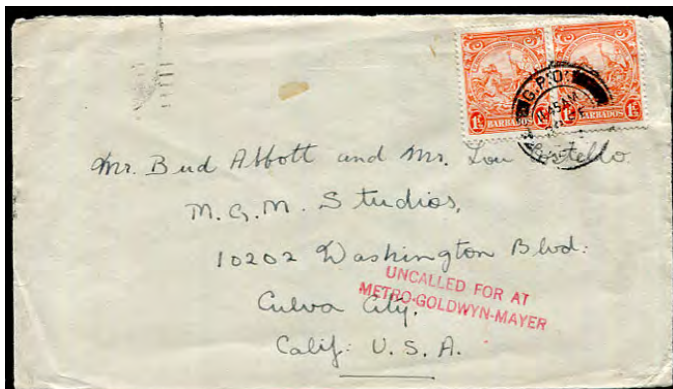 1½ BARBADOS 1½ 1½ BARBADOS 1½
G.P.O.
Mr. Bud Abbott and Mr. Lou tello
M.G.M. Studios,
10202 Washington Blvd:
UNCALLED FOR AT
METRO-GOLDWYN-MAYER
Culva City.
Calif: U. S. A.